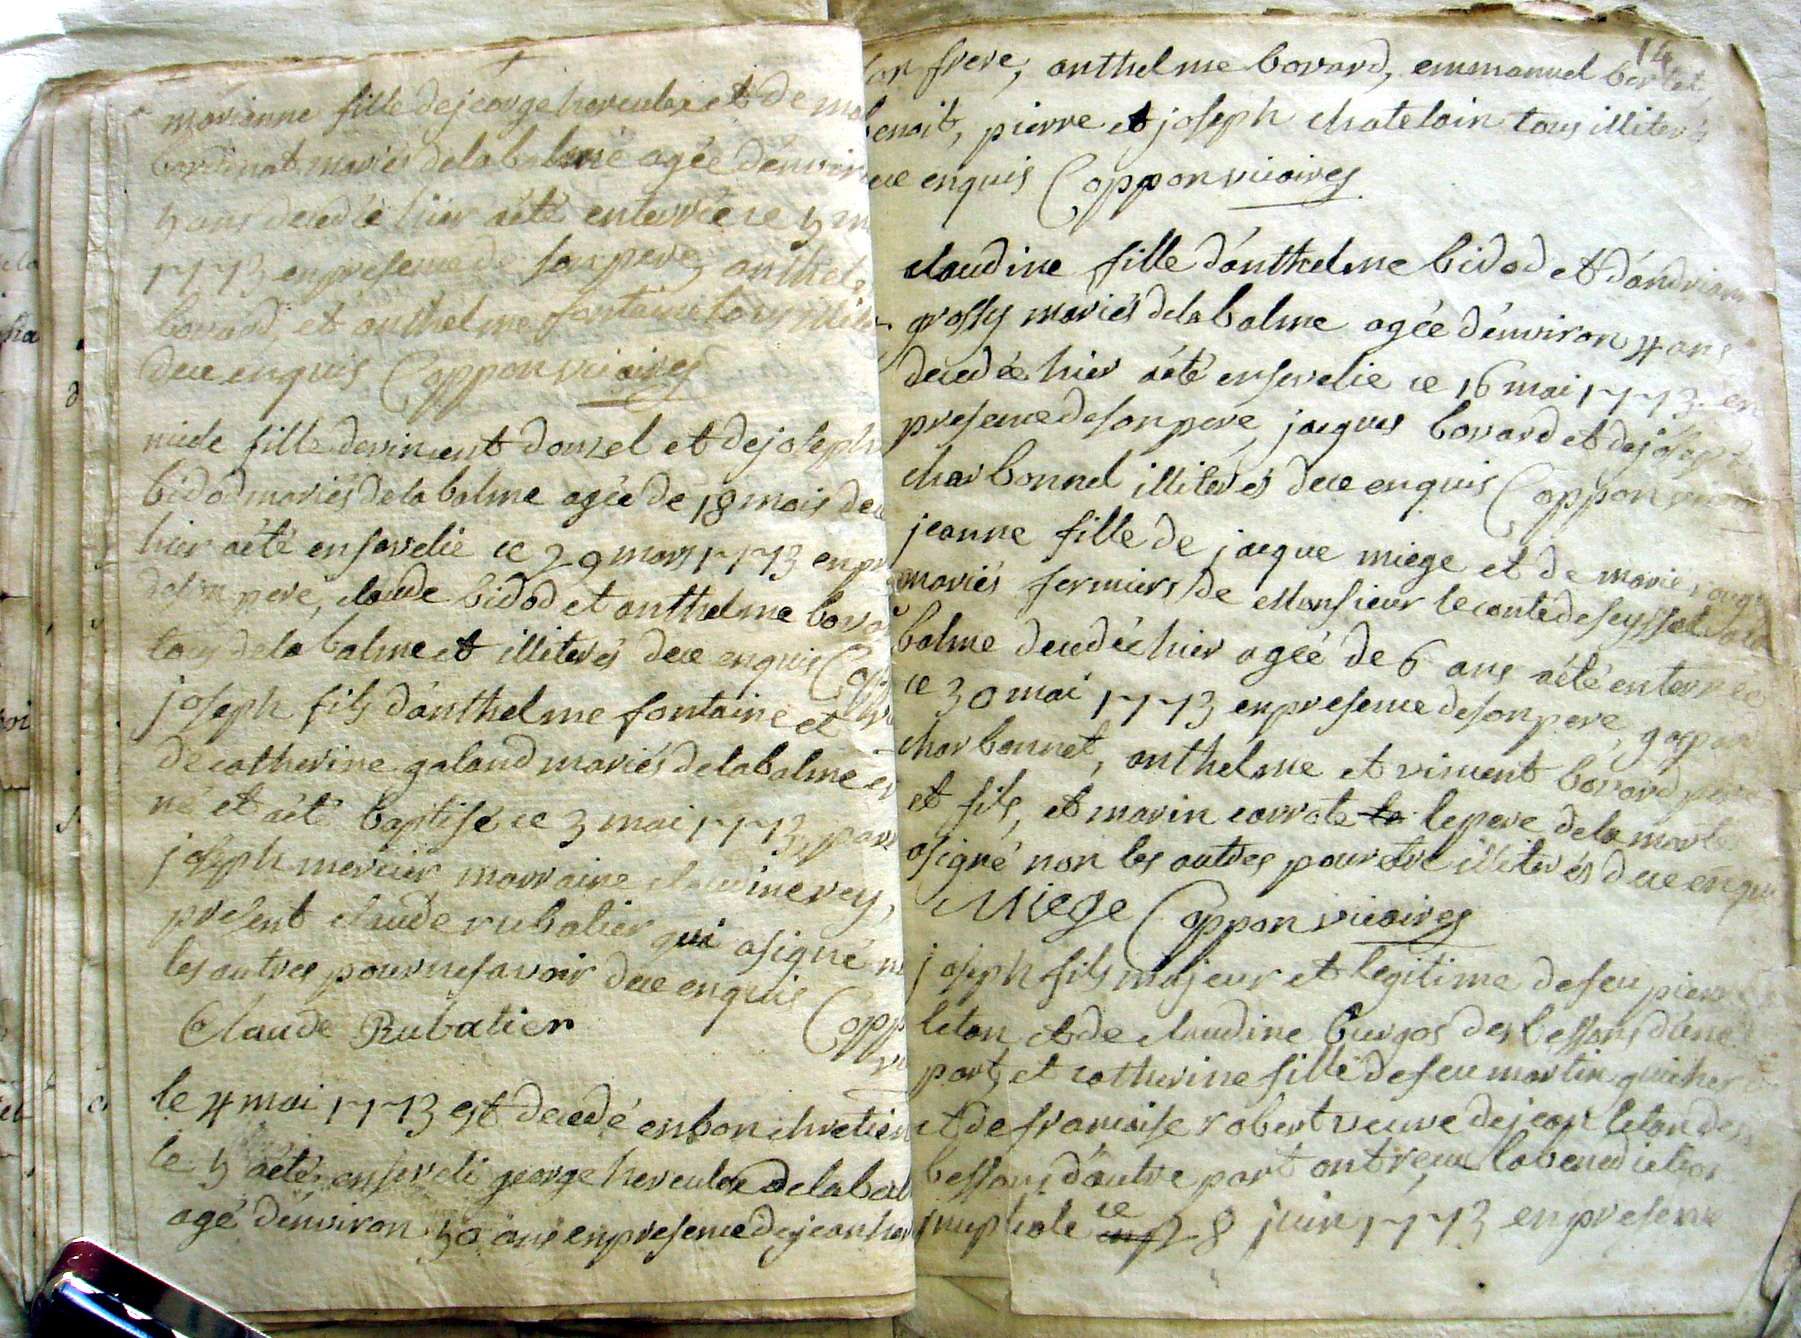 marianne fille de jeorge herculex et de ma
mariés de la balme agée d'environ
5 ans decedée hier a été enterrée ce 5 m
1773 en presence de son pere, anthel
bovard, et anthelme fontaine tous illite
de ce enquis Coppon vicaires
fille de vincent domsel et de joseph
bidod mariés de la balme agée de 18 mois dec
hier a été ensevelie ce 29 mars 1773 en pr
de son pere, claude bidod et anthelme bova
tous de la balme et illiterés de ce enquis Copp
joseph fils d'anthelme fontaine et
de catherine galand mariés de la balme e
né et a été baptisé ce 3 mai 1773, par
joseph mercier marraine claudine rey,
présent claude rubatier qui a signé n
les autres pour ne savoir de ce enquis
Claude Rubatier Copp
le 4 mai 1773 est decedé en bon chretien
le 5 a été enseveli jeorge herculex de la bal
agé d'environ 50 ans en presence de jean her
14
son frere, anthelme bovard, emmanuel bertet,
benoit, pierre et joseph chatelain tous illiterés
de ce enquis Coppon vicaires
claudine fille d'anthelme bidod et d'andriane
grossy mariés de la balme agée d'environ 4 ans
decedée hier a été ensevelie ce 16 mai 1773 en
presence de son pere, jacques bovard et de joseph
charbonnel illiterés de ce enquis Coppon
jeanne fille de jacque miege et de marie
mariés fermiers de Monsieur le conte de seyssel de la
balme decedée hier agée de 6 ans a été enterrée
ce 30 mai 1773 en presence de son pere, gaspar
charbonnet, anthelme et vincent bovard pere
et fils, et marin carrote le pere de la morte
a signé non les autres pour etre illiterés de ce enquis
Miege Coppon vicaires
joseph fils majeur et legitime de feu pierre
leton et de claudine burgos des bessons d'une
part, et catherine fille de feu martin guicher
et de francoise robert veuve de jean leton des
bessons d'autre part ont reçu la benediction
nuptiale ce 8 juin 1773 en presence